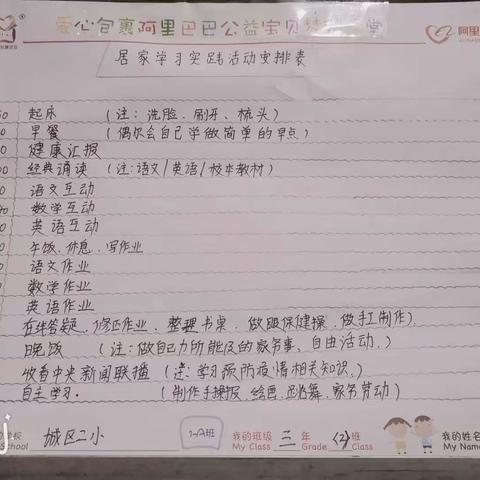 爱心包裹阿里巴巴公益宝贝 堂
阿里
居家学习实践活动安排表
起床 （注：洗脸、刷牙、梳头）
早餐 （偶尔会自己学做简单的早点）
健康汇报
经典诵读 （注：语文/英语/校本教材）
语文互动
数学互动
英语互动
午饭、休息、写作业
语文作业
数学作业
英语作业
在线答疑、修正作业、整理书桌、做眼保健操、做手工制作）
晚饭 （注：做自己力所能及的家务事、自由活动、）
收看中央新闻联播 （注：学习预防疫情相关知识、）
自主学习. （制作手抄报、绘画、跳舞、家务劳动）
学校 城区二小 我的班级 三 年 〈2〉 班 我的姓名
School My Class Grade Class My Name